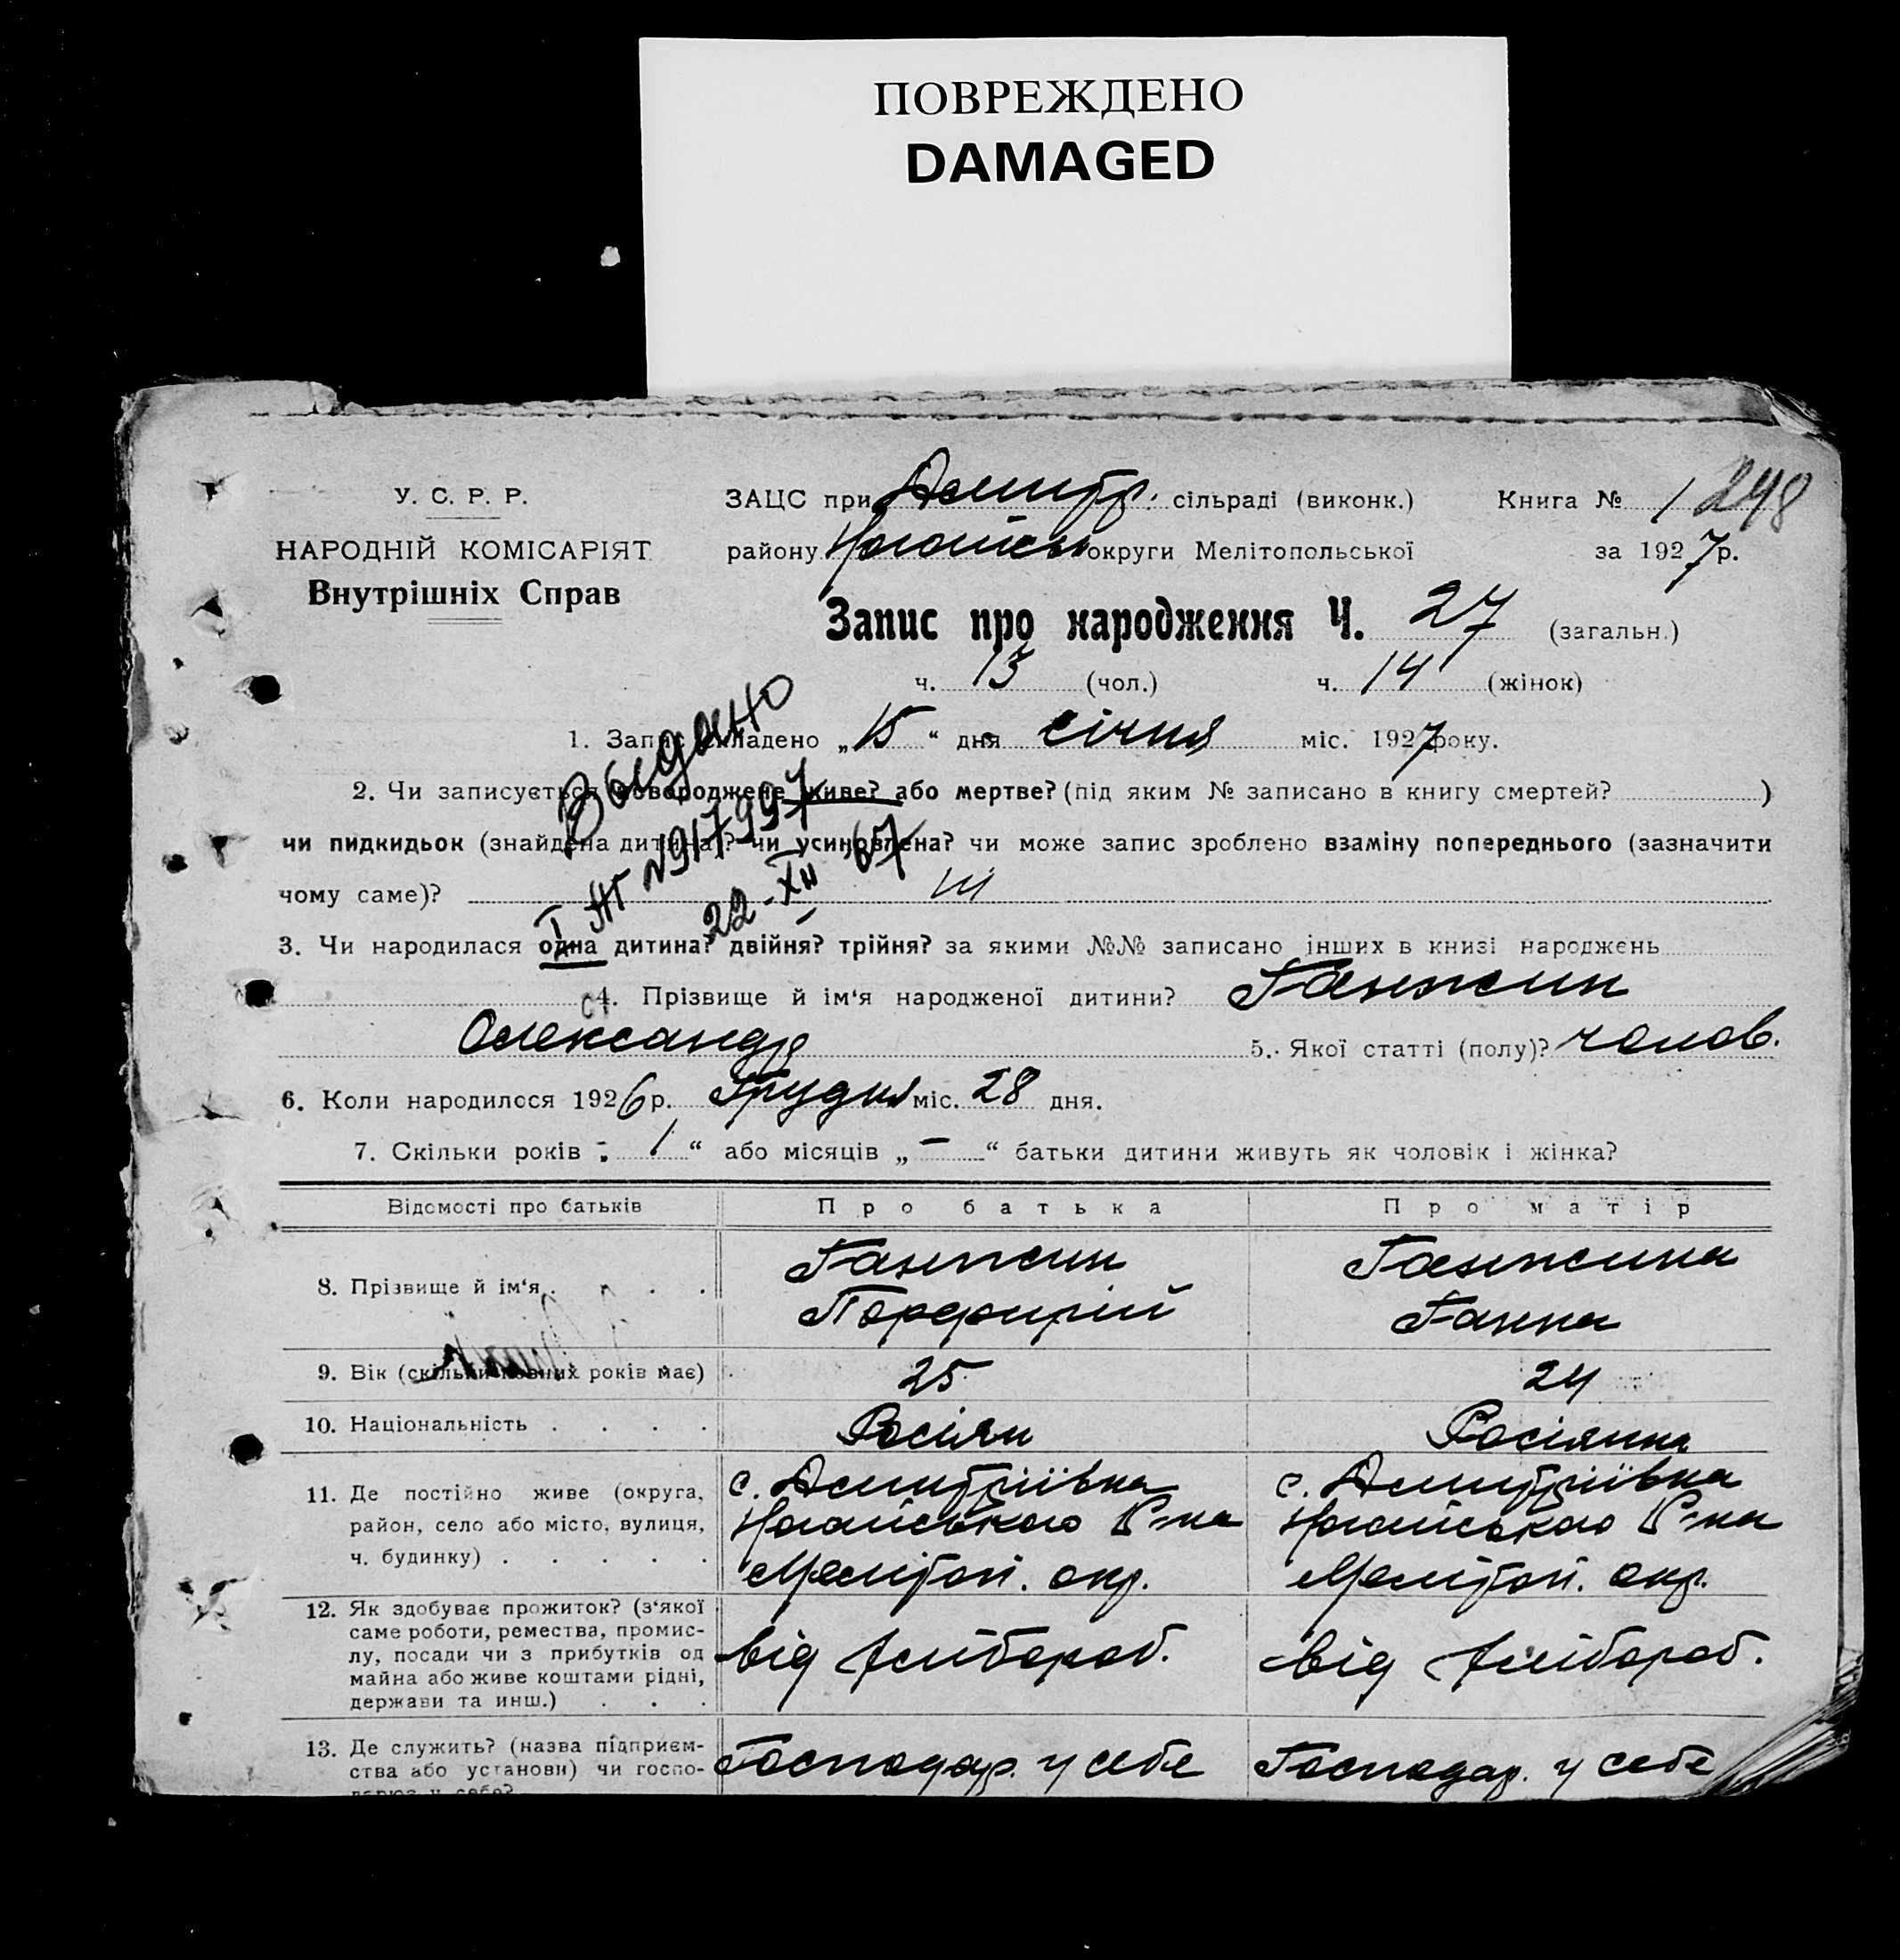 ПОВРЕЖДЕНО
DAMAGED
У. С. Р. Р.
НАРОДНІЙ КОМІСАРІЯТ
Внутрішніх Справ
ЗАЦС при Дмитр. сільраді (виконк.) Книга № 1 248
району Ногайськ округи Мелітопольської за 1927 р.
Запис про народження Ч. 27 (загальн.)
ч. 13 (чол.) ч. 14 (жінок)
1. Запис складено „15“ дня січня міс. 1927 року.
2. Чи записується новороджене живе? або мертве? (під яким № записано в книгу смертей? )
чи пидкидьок (знайдена дитина)? чи усиновлена? чи може запис зроблено взаміну попереднього (зазначити
чому саме)?
Выдано
І ЖГ №917997
22-XII 67
3. Чи народилася одна дитина? двійня? трійня? за якими №№ записано інших в книзі народжень
4. Прізвище й ім‘я народженої дитини? Ганжин
Олександр 5. Якої статті (полу)? чолов.
6. Коли народилося 1926 р. Грудня міс. 28 дня.
7. Скільки років „1“ або місяців „—“ батьки дитини живуть як чоловік і жінка?
Відомості про батьків Про батька Про матір
8. Прізвище й ім‘я . . . . Ганжин Ганжина
Порфирій Ганна
9. Вік (скільки повних років має) 25 24
10. Національність . . . . Росіян Росіянка
11. Де постійно живе (округа, с. Дмитріївка с. Дмитріївка
район, село або місто, вулиця, Ногайського Р-на Ногайського Р-на
ч. будинку) . . . . . Мелітоп. окр. Мелітоп. окр.
12. Як здобуває прожиток? (з‘якої
саме роботи, ремества, промис-
лу, посади чи з прибутків од від хлібороб. від хлібороб.
майна або живе коштами рідні,
держави та инш.) . . .
13. Де служить? (назва підприєм-
ства або установи) чи госпо- Господар. у себе Господар. у себе
дарює у себе?